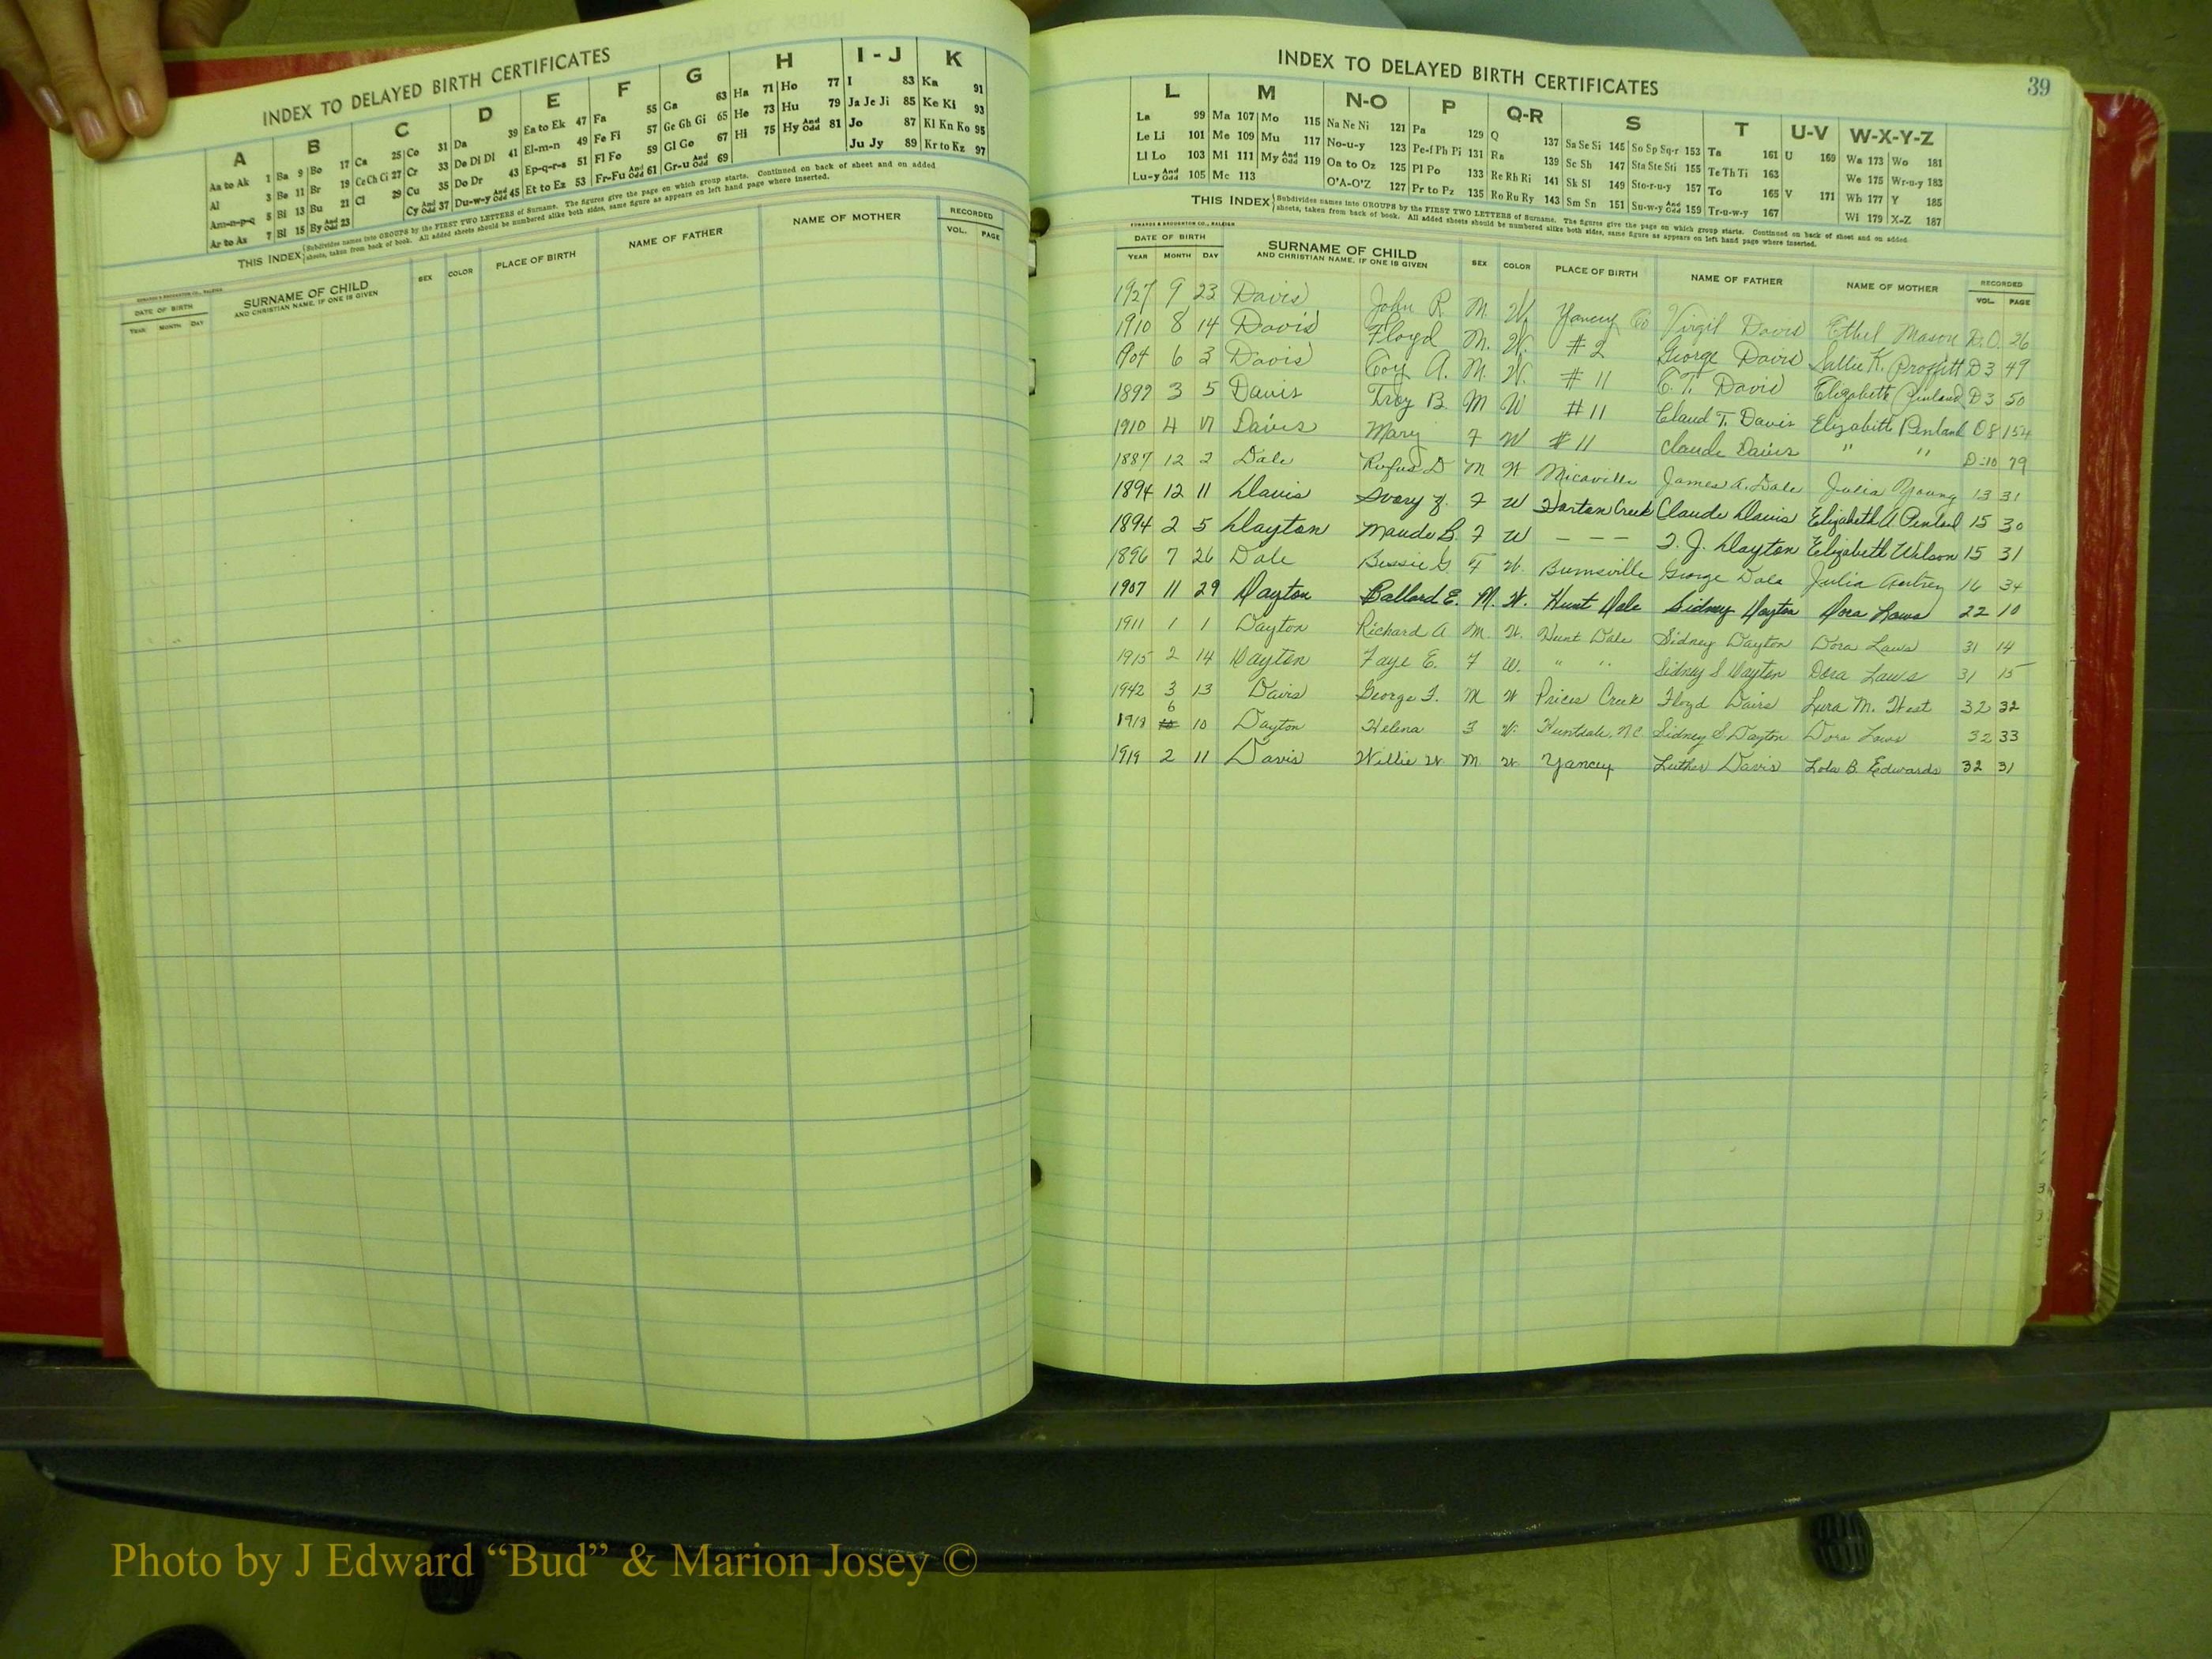 INDEX TO DELAYED BIRTH CERTIFICATES
A B C D E F G H I - J K
Aa to Ak 1 Ba 9 Bo 17 Ca 25 Co 31 Da 39 Ea to Ek 47 Fa 55 Ga 63 Ha 71 Ho 77 I 83 Ka 91
Al 3 Be 11 Br 19 Ce Ch Ci 27 Cr 33 De Di Dl 41 El-m-n 49 Fe Fi 57 Ge Gh Gi 65 He 73 Hu 79 Ja Je Ji 85 Ke Ki 93
Am-n-p-q 5 Bi 13 Bu 21 Cl 29 Cu 35 Do Dr 43 Ep-q-r-s 51 Fl Fo 59 Gl Go 67 Hi 75 Hy And Odd 81 Jo 87 Kl Kn Ko 95
Ar to Az 7 Bl 15 By And Odd 23 Cy And Odd 37 Du-w-y And Odd 45 Et to Ez 53 Fr-Fu And Odd 61 Gr-u And Odd 69 Ju Jy 89 Kr to Kz 97
THIS INDEX Subdivides names into GROUPS by the FIRST TWO LETTERS of Surname. The figures give the page on which group starts. Continued on back of sheet and on added
sheets, taken from back of book. All added sheets should be numbered alike both sides, same figure as appears on left hand page where inserted.
EDWARDS & BROUGHTON CO., RALEIGH
DATE OF BIRTH SURNAME OF CHILD SEX COLOR PLACE OF BIRTH NAME OF FATHER NAME OF MOTHER RECORDED
YEAR MONTH DAY AND CHRISTIAN NAME, IF ONE IS GIVEN VOL. PAGE
INDEX TO DELAYED BIRTH CERTIFICATES
39
L M N-O P Q-R S T U-V W-X-Y-Z
La 99 Ma 107 Mo 115 Na Ne Ni 121 Pa 129 Q 137 Sa Se Si 145 So Sp Sq-r 153 Ta 161 U 169 Wa 173 Wo 181
Le Li 101 Me 109 Mu 117 No-u-y 123 Pe-f Ph Pi 131 Ra 139 Sc Sh 147 Sta Ste Sti 155 Te Th Ti 163 We 175 Wr-u-y 183
Ll Lo 103 Mi 111 My And Odd 119 On to Oz 125 Pl Po 133 Re Rh Ri 141 Sk Sl 149 Sto-r-u-y 157 To 165 V 171 Wh 177 Y 185
Lu-y And Odd 105 Mc 113 O'A-O'Z 127 Pr to Pz 135 Ro Ru Ry 143 Sm Sn 151 Su-w-y And Odd 159 Tr-u-w-y 167 Wi 179 X-Z 187
THIS INDEX Subdivides names into GROUPS by the FIRST TWO LETTERS of Surname. The figures give the page on which group starts. Continued on back of sheet and on added
sheets, taken from back of book. All added sheets should be numbered alike both sides, same figure as appears on left hand page where inserted.
EDWARDS & BROUGHTON CO., RALEIGH
DATE OF BIRTH SURNAME OF CHILD SEX COLOR PLACE OF BIRTH NAME OF FATHER NAME OF MOTHER RECORDED
YEAR MONTH DAY AND CHRISTIAN NAME, IF ONE IS GIVEN VOL. PAGE
1927 9 23 Davis John R. M. W. Yancey Co Virgil Davis Ethel Mason 26
1910 8 14 Davis Floyd M. W. #2 George Davis Sallie K. Proffitt D3 49
1904 6 3 Davis Coy A. M. W. #11 C. T. Davis Elizabeth Penland D3 50
3 5 Davis Troy B. M W #11 Claud T. Davis Elizabeth Penland D8 154
1910 4 17 Davis Mary F W #11 Claude Davis " " D-10 79
1887 12 2 Dale Rufus D M W Micaville James A. Dale Julia Young 13 31
1894 12 11 Davis F W Horton Creek Claude Davis Elizabeth A. Penland 15 30
1894 2 5 Dayton Maude B. F W - - - Dayton Elizabeth Wilson 15 31
1896 7 26 Dale Bessie G. F W. Burnsville George Dale Julia 16 34
1907 11 29 Dayton Ballard E. M. W. Hunt Dale Sidney Dayton Dora Laws 22 10
1911 1 1 Dayton Richard A M. W. Hunt Dale Sidney Dayton Dora Laws 31 14
1915 2 14 Dayton Faye E. F W. " " Sidney S. Dayton Dora Laws 31 15
1942 3 13 Davis George F. M W Prices Creek Floyd Davis Lura M. West 32 32
1918 6 10 Dayton Helena F W. Huntdale, N.C. Sidney S. Dayton Dora Laws 32 33
1919 2 11 Davis Willie W. M W. Yancey Luther Davis Lola B. Edwards 32 31
Photo by J Edward “Bud” & Marion Josey ©